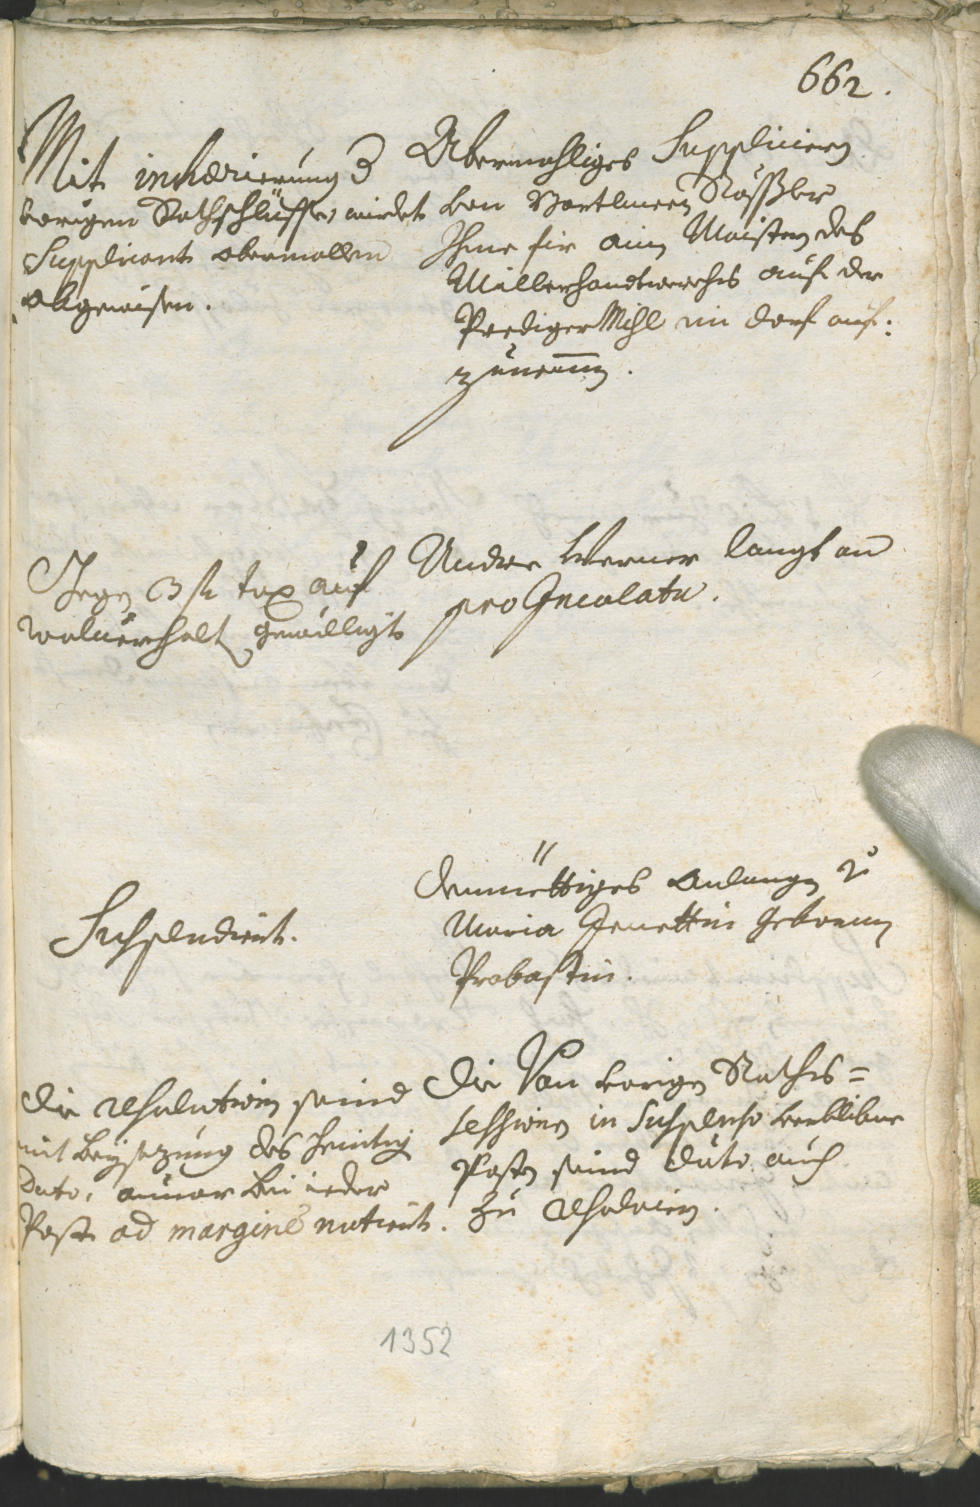 662.
Mit inhærierung 3
vorigen Rathschlüssen, wirdet
Supplicant abermallen
abgewisen.
Abermahliges Suppliciern
von Bartlmeen Rössler
Ihme fir ain Maistern des
Millerhandtwerchs auf der
Prediger Mihl im dorf auf:
zunemmen.
Gegen 3 fl tax auf
wolverhalt gewilligt
Andre Werner langt an
pro Incolatu.
Suspendirt.
Demiettiges anlangen
Maria Genettin geborne
Probastin.
Die resolutionen seind
mit beysezung des heintig
Dato, animar bei ieder
Post ad marginẽ notiert.
Die Von vorigen Raths=
session in Suspenso verblibne
Posten seind dato auch
zu resolvirn.
1352